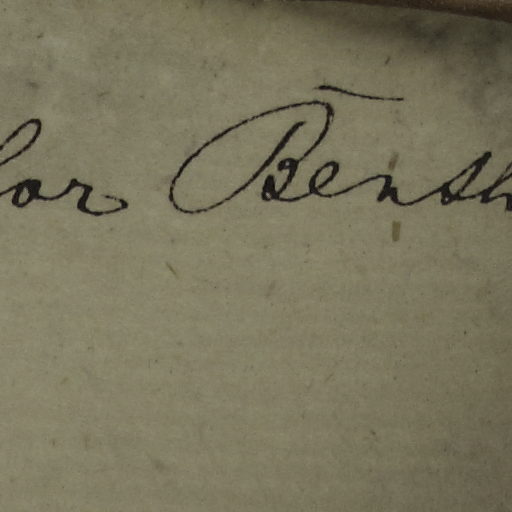 lor Bensh